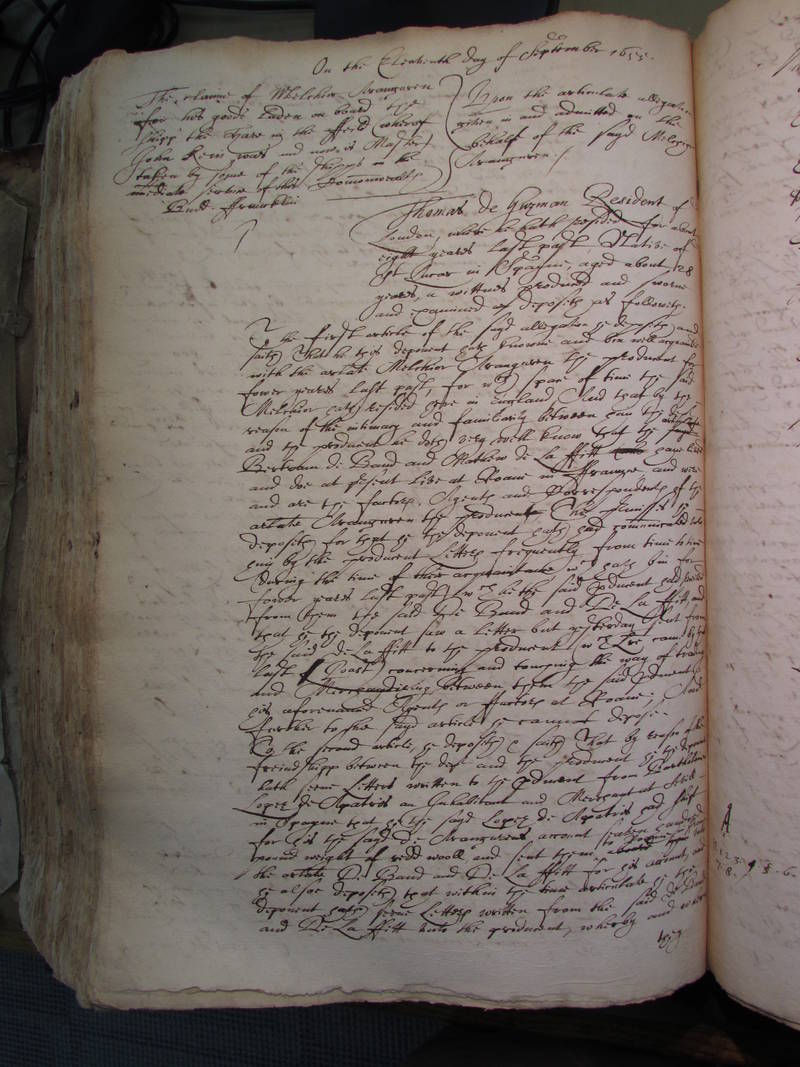 On the Eleaventh day of September 1655.
The claime of Melchior Aranguren
for his goods laden on board the
shipp the Hare in the ffeild whereof
John Rem was and now is Master
taken by some of the shipps in the
imediate service of this Comonwealth
Budd. ffrancklin
Upon the articulate allegation
given in and admitted on the
behalfe of the sayd Melchior
Aranguren /
Thomas de Guzman Resident of
London, where he hath resided for about
eight yeares last past, Native of
St Lucar in Spaine, aged about 28
yeares, a wittnes produced and sworne
and examined deposeth as followeth.
To the first article of the sayd allegation he deposeth and
saith That he this deponent hath knowne and bin well acquainted
with the arlate Melchior Aranguren the producent for
fower yeares last past, for wch space of time the said
Melchior hath resided here in England And that by the
reason of the intimacy and familiarity betweene him the dept
and the producent he doth very well know that the arlate
Bertram de Band and Mathew de La ffitt have lived
and doe at present live at Roane in ffrance and were
and are the factors, Agents and Correspondents of the
arlate Aranguren the producent The premisses he
deposeth for that he the deponent hath had communicated unto
him by the producent Letters frequently from time to time
during the time of their acquaintance wch hath bin for
fower yeares last past wch he the said producent had received
from them the said De Band and De La ffitt, and
that he the deponent saw a letter but yesterday sent from
the said De La ffitt to the producent wch came by the
last Poast concerning and touching the way of trading
and Merchandizing betweene them the said producent and
his aforenamed Agents or ffactors at Roane; And
further to the sayd article he cannot depose.
To the second article, he deposeth & saith That by reason of the
freindshipp betweene the dept and the producent he the deponent
hath seene Letters written to the producent from Bartholomew
Lopez de Apatris an Inhabitant and Merchant at Sivill
in Spayne that he the sayd Lopez de Apatris had shipt
for his the sayd De Arangurens account
pound weight of redd wooll and sent them
the arlate De Band and De La ffitt for his account, and
he alsoe deposeth that within the time articulate he the
deponent hath seene Letters written from the said De Band
and De La ffitt unto the producent, whereby and
they
A
1. 2. 3. 4. 5. 6.
7. 8.